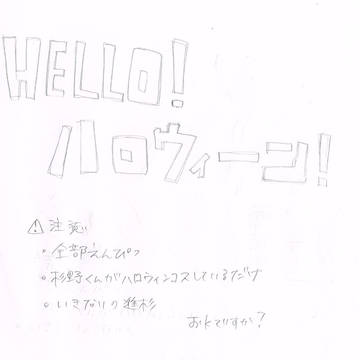 HELLO!
ハロウィーン!
⚠注意
・全部えんぴつ
・杉野くんがハロウィンコスしているだけ
・いきなりの進杉
おkですか?